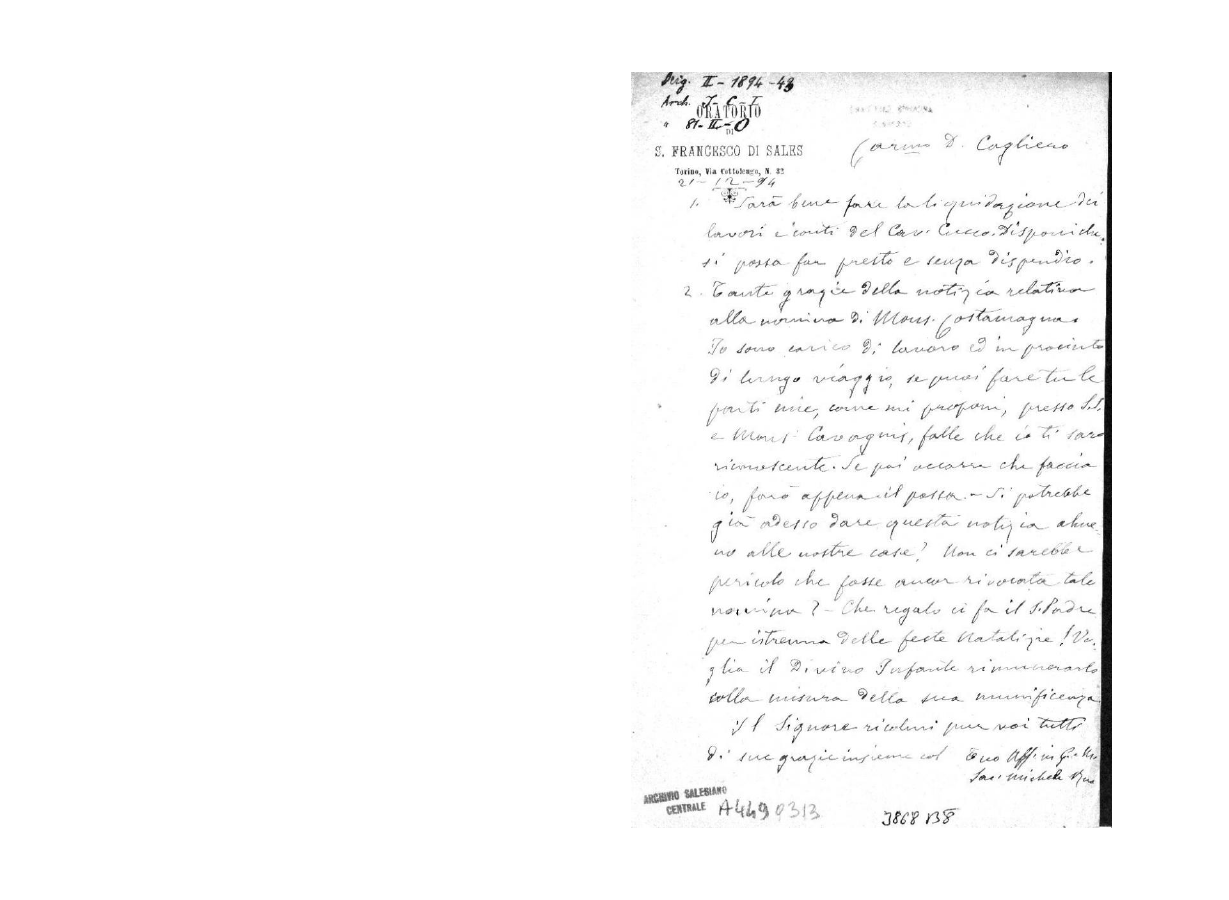 Orig. II - 1894 - 43
Arch. I - C - I
" 81 - II - O
ORATORIO
DI
S. FRANCESCO DI SALES
Torino, Via Cottolengo, N. 32
21-12-94
Carmo D. Cagliero
1. Sarà bene fare la liquidazione dei
lavori e conti del Cav. Cucco. Disponi che
si possa far presto e senza dispendio.
2. Tante grazie della notizia relativa
alla nomina di Mons. Costamagna.
Io sono carico di lavoro ed in procinto
di lungo viaggio, se puoi fare tu le
parti mie, come mi proponi, presso S.S.
e Mons. Cavagnis, falle che io ti sarò
riconoscente. Se poi occorre che faccia
io, farò appena il possa. - Si potrebbe
già adesso dare questa notizia alme
no alle nostre case? Non ci sarebbe
pericolo che fosse ancor rivocata tale
nomina? - Che regalo ci fa il S. Padre
per istrenna delle feste Natalizie! Vo
glia il Divino Infante rimunerarlo
colla misura della sua munificenza
Il Signore ricolmi pur voi tutti
di sue grazie insieme col Tuo Aff. in G. e M.
Sac. Michele Rua
ARCHIVIO SALESIANO
CENTRALE
A4490313
3868 B8